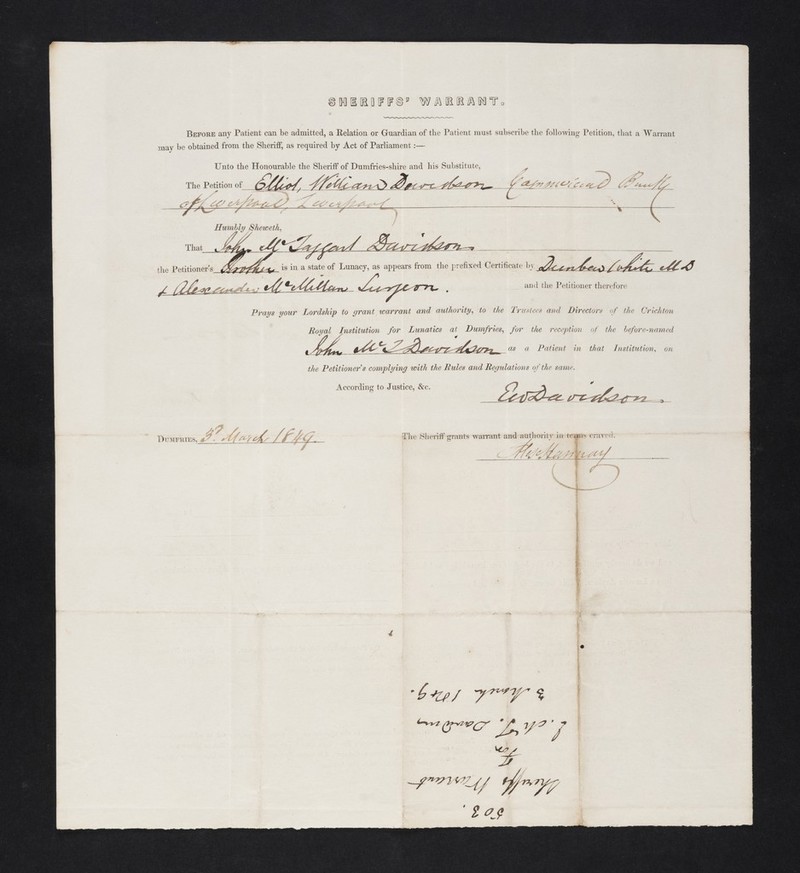 SHERIFFS' WARRANT.
BEFORE any Patient can be admitted, a Relation or Guardian of the Patient must subscribe the following Petition, that a Warrant
may be obtained from the Sheriff, as required by Act of Parliament :—
Unto the Honourable the Sheriff of Dumfries-shire and his Substitute,
The Petition of Elliot, William Davidson Commercial Bank
of Liverpool, Liverpool
Humbly Sheweth,
That John McTaggart Davidson
the Petitioner's Brother is in a state of Lunacy, as appears from the prefixed Certificate by Dunbar White M.D
& Alexander McMillan Surgeon. and the Petitioner therefore
Prays your Lordship to grant warrant and authority, to the Trustees and Directors of the Crichton
Royal Institution for Lunatics at Dumfries, for the reception of the before-named
John McT Davidson as a Patient in that Institution, on
the Petitioner's complying with the Rules and Regulations of the same.
According to Justice, &c.
EWDavidson.
DUMFRIES, 3d March 1849. The Sheriff grants warrant and authority in terms craved.
Hannay
503.
Sheriffs Warrant
For
J. McT. Davidson
3 March 1849.